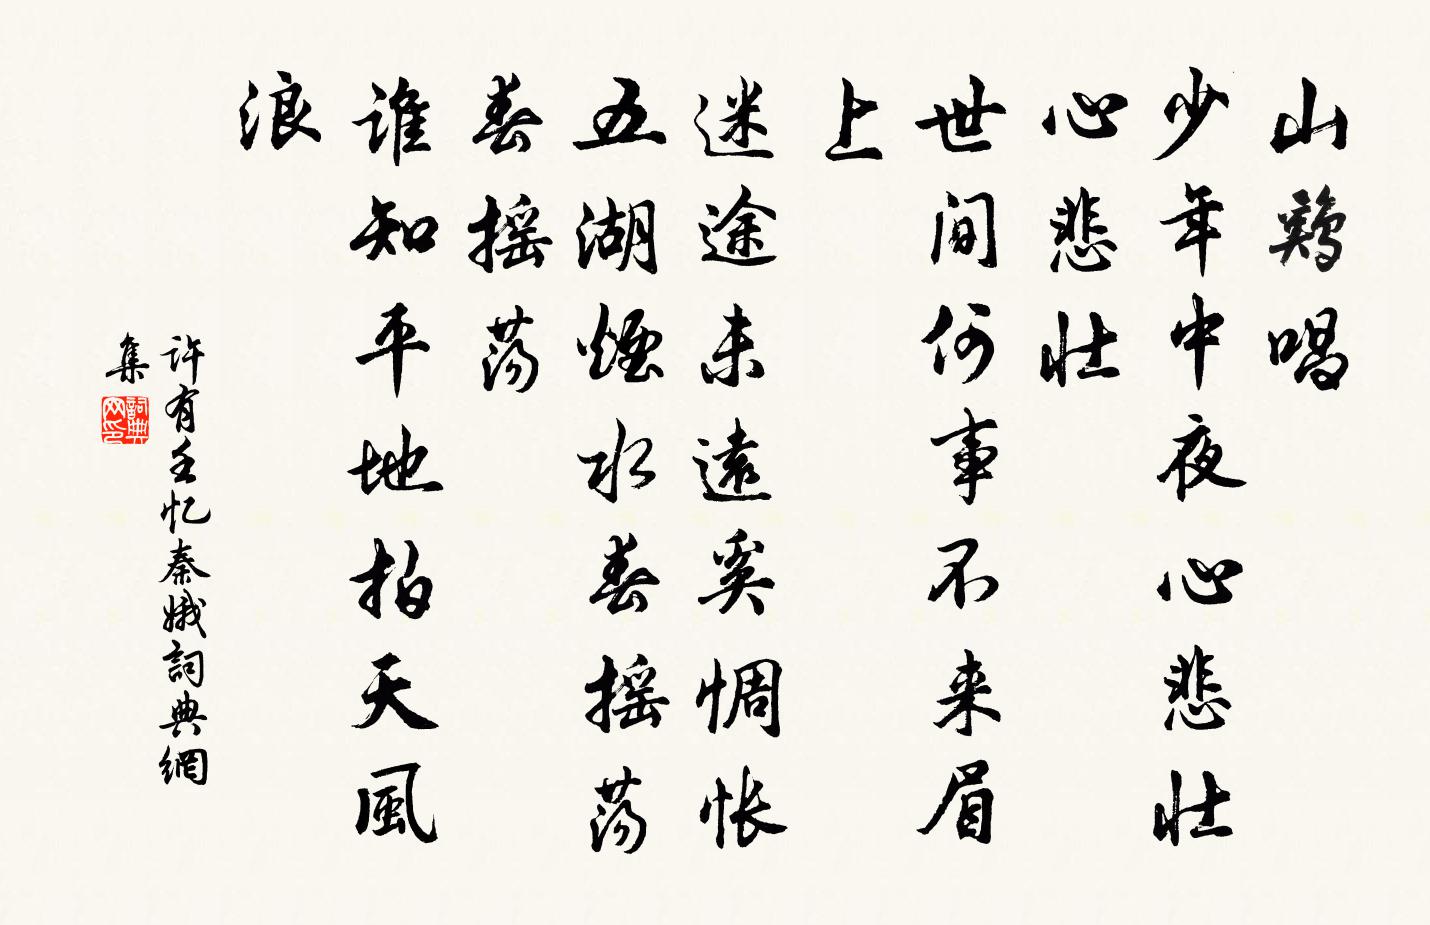 山鷄唱
少年中夜心悲壮
心悲壮
世间何事不来眉
上
迷途未遠奚惆怅
五湖煙水春摇荡
春摇荡
谁知平地拍天風
浪
许有壬忆秦娥詞典網
集
詞典
网印